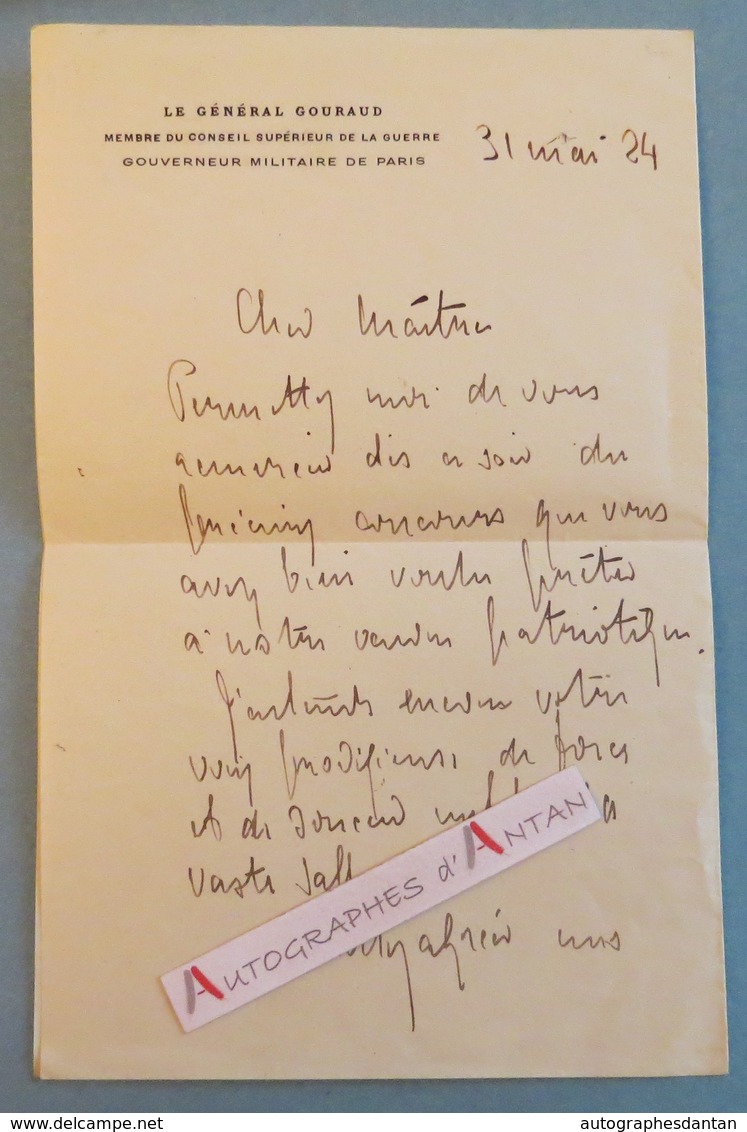 LE GÉNÉRAL GOURAUD
MEMBRE DU CONSEIL SUPÉRIEUR DE LA GUERRE
GOUVERNEUR MILITAIRE DE PARIS
31 mai 24
Cher Maître
Permettez moi de vous
remercier dès ce soir du
précieux concours que vous
avez bien voulu prêter
à notre vendue patriotique.
J'entends encore votre
voix prodigieuse de force
et de douceur
vaste
agréer mes
AUTOGRAPHES d'ANTAN
delcampe.net
autographesdantan